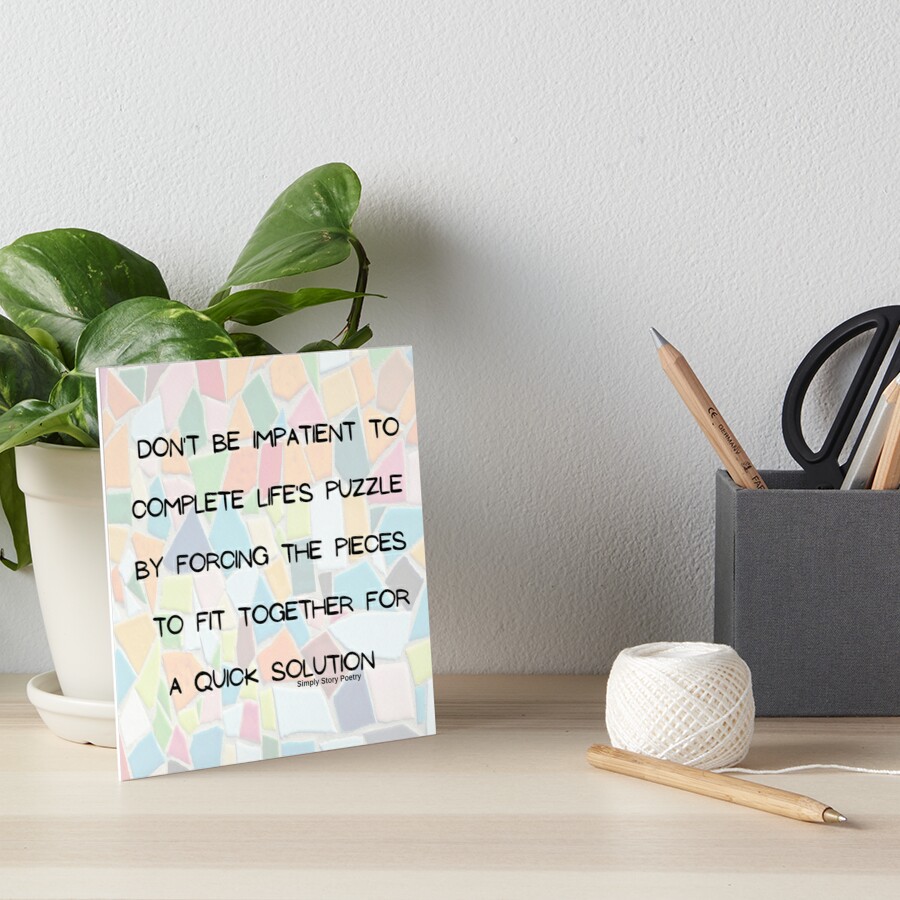 DON'T BE IMPATIENT TO
COMPLETE LIFE'S PUZZLE
BY FORCING THE PIECES
TO FIT TOGETHER FOR
A QUICK SOLUTION
Simply Story Poetry
CE GERMANY